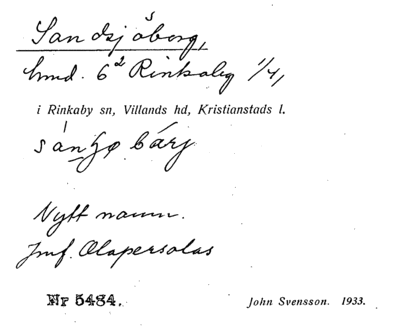 Sandsjöborg,
hmd. 6² Rinkaby 1/4,
i Rinkaby sn, Villands hd, Kristianstads l.
Nytt namn.
Jmf. Olapersolas
Nr 5484.
John Svensson. 1933.